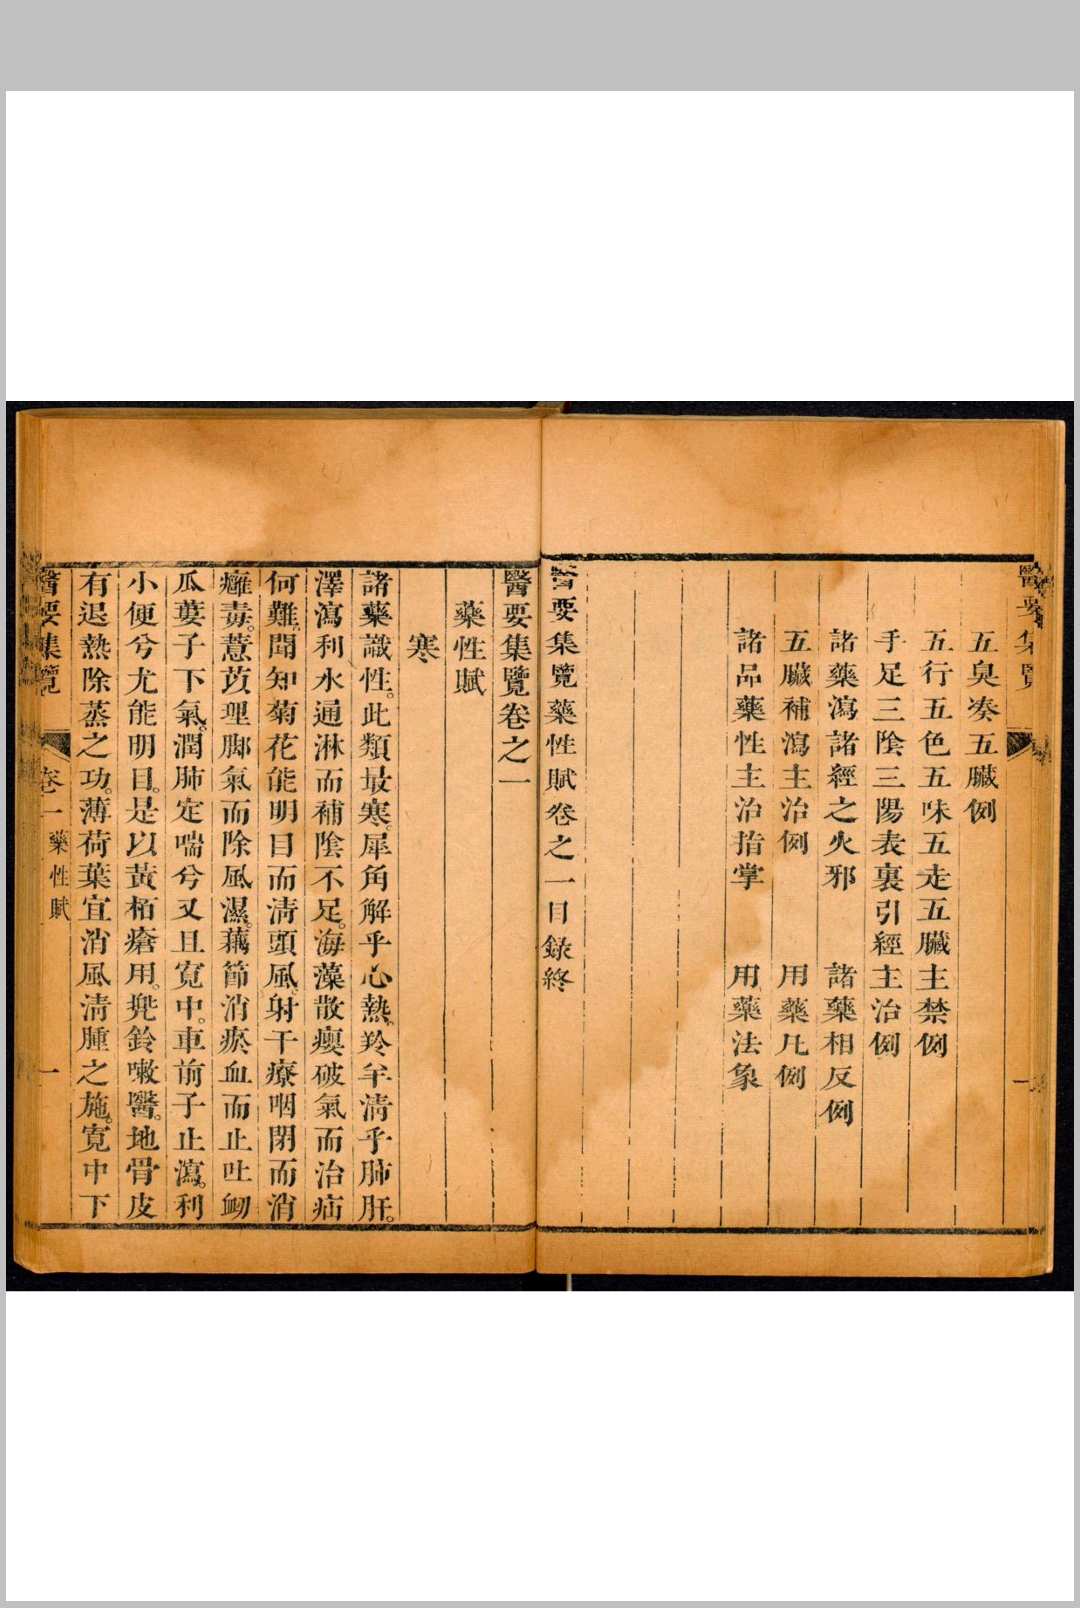 醫要集覽
一
五臭凑五臟例
五行五色五味五走五臟主禁例
手足三陰三陽表裏引經主治例
諸藥瀉諸經之火邪　諸藥相反例
五臟補瀉主治例　用藥凡例
諸品藥性主治指掌　用藥法象
醫要集覽藥性賦卷之一目錄終
醫要集覽卷之一
藥性賦
寒
諸藥識性。此類最寒。犀角解乎心熱。羚羊清乎肺肝。
澤瀉利水通淋而補陰不足。海藻散癭破氣而治疝
何難。聞知菊花能明目而清頭風。射干療咽閉而消
癰毒。薏苡理脚氣而除風濕。藕節消瘀血而止吐衂
瓜蔞子下氣。潤肺定喘兮又且寛中。車前子止瀉。利
小便兮尤能明目。是以黃栢瘡用。兠鈴嗽醫。地骨皮
有退熱除蒸之功。薄荷葉宜消風清腫之施。寛中下
醫要集覽　卷一　藥性賦　一